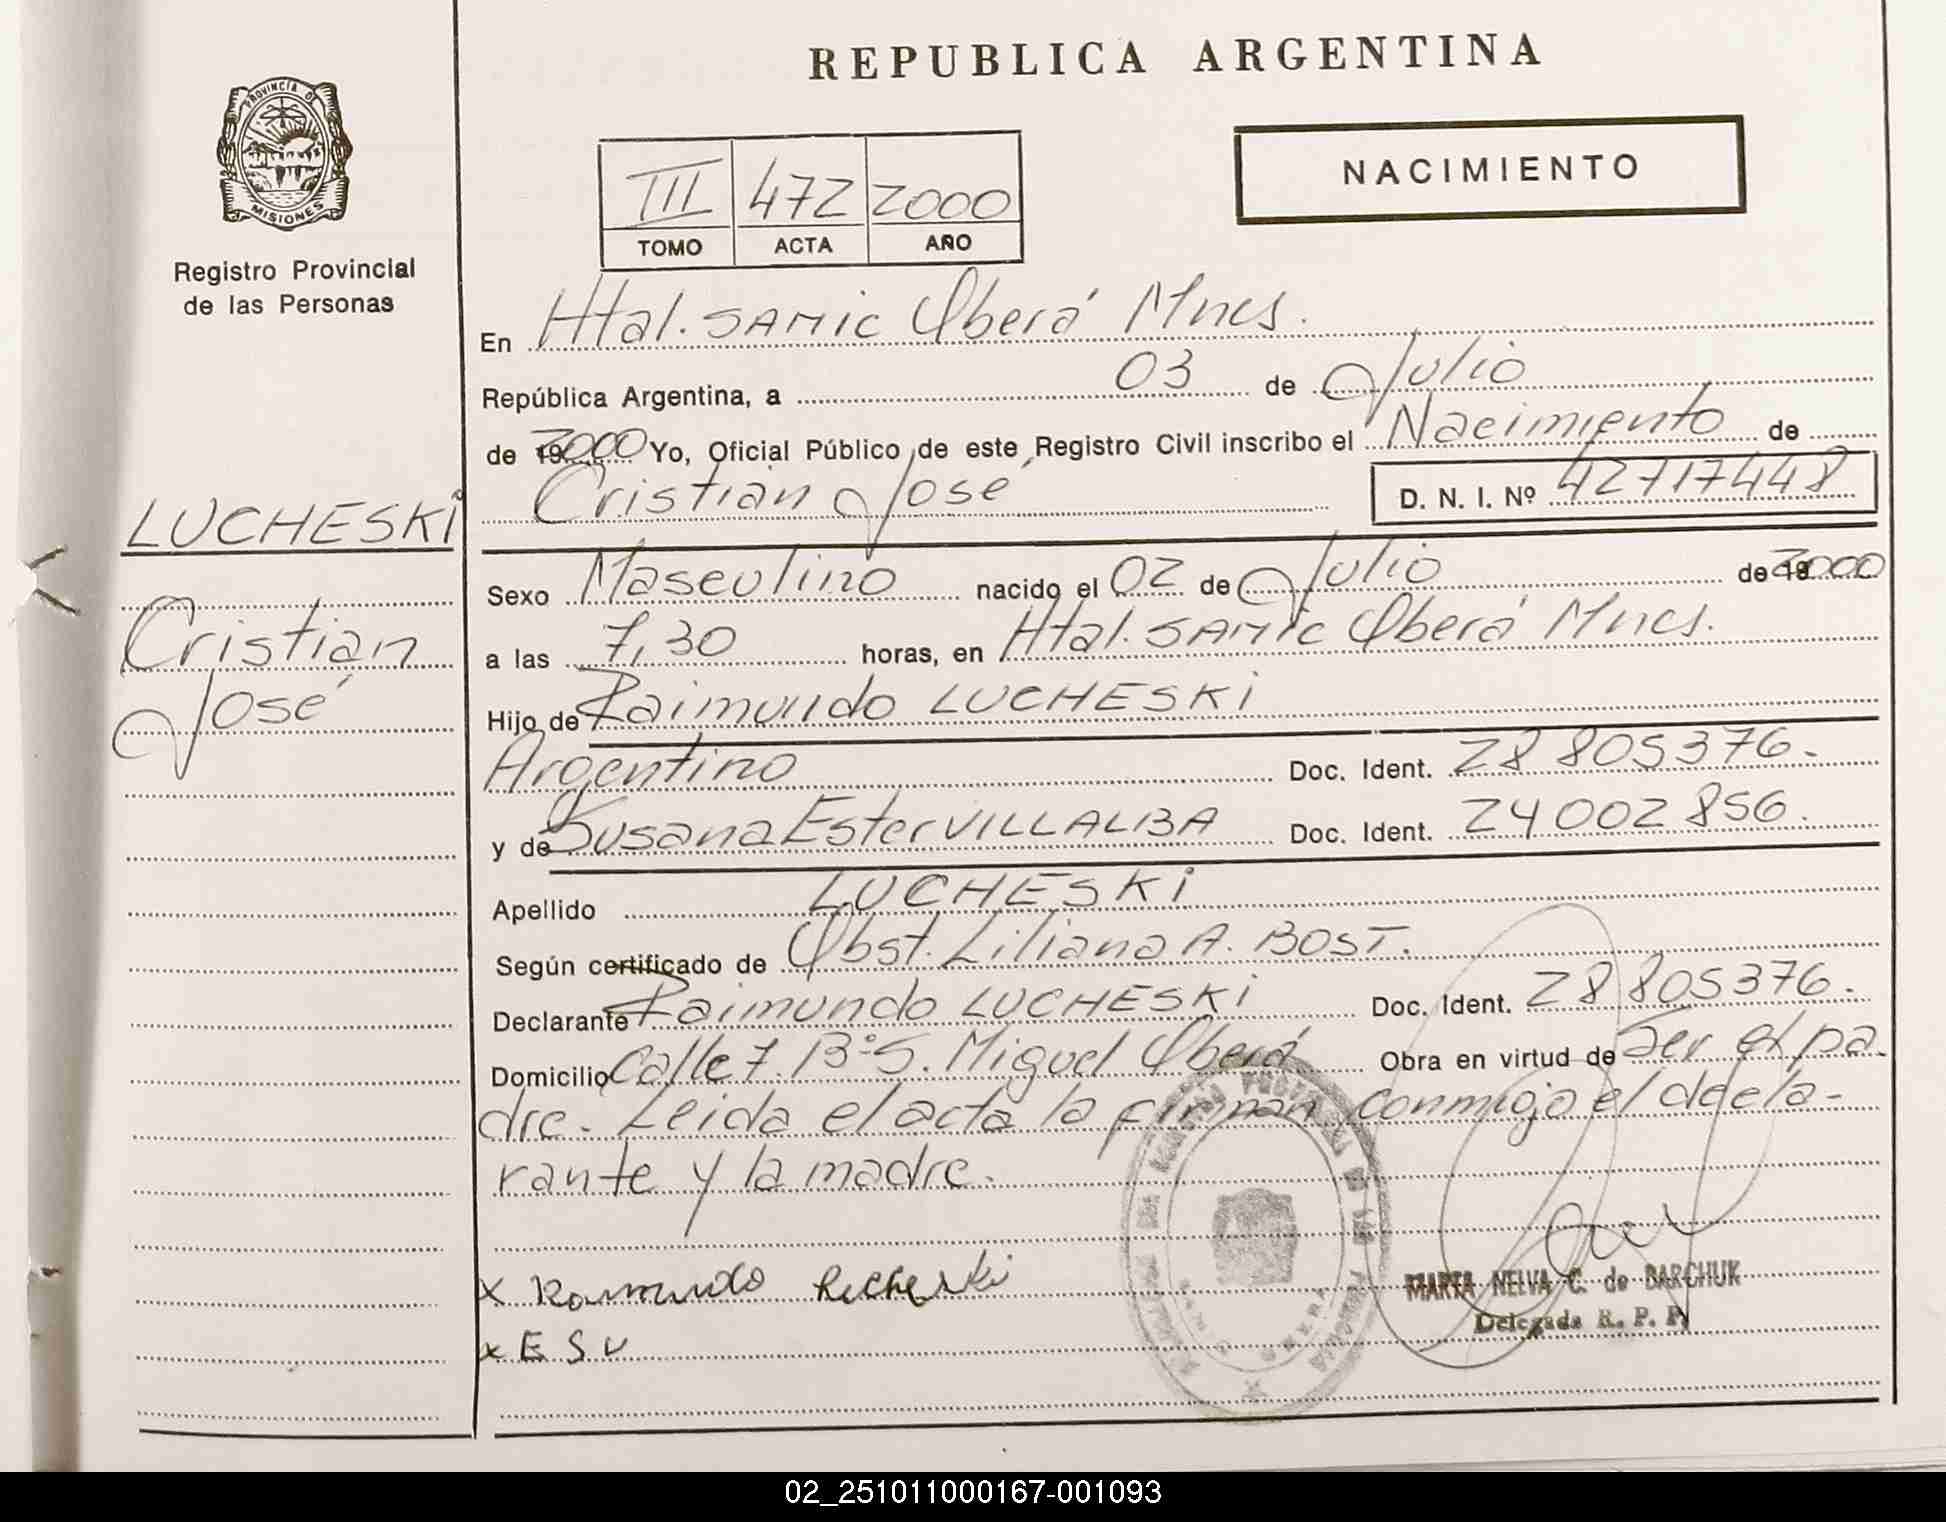 REPUBLICA ARGENTINA
PROVINCIA DE
MISIONES
Registro Provincial
de las Personas
III 472 2000
TOMO ACTA AÑO
NACIMIENTO
En Htal. SAMIC Oberá Mnes.
República Argentina, a 03 de Julio
de 2000 Yo, Oficial Público de este Registro Civil inscribo el Nacimiento de
Cristian José D. N. I. Nº 42717448
LUCHESKI
Cristian
José
Sexo Masculino nacido el 02 de Julio de 2000
a las 7,30 horas, en Htal. SAMIC Oberá Mnes.
Hijo de Raimundo LUCHESKI
Argentino Doc. Ident. 28 805376.
y de Susana Ester VILLALBA Doc. Ident. 24 002 856.
Apellido LUCHESKI
Según certificado de Obst. Liliana A. BOST.
Declarante Raimundo LUCHESKI Doc. Ident. 28 805376.
Domicilio Calle 7 Bº S. Miguel Oberá Obra en virtud de Ser el pa-
dre. Leida el acta la firman conmigo el decla-
rante y la madre.
x Raimundo Lucheski
x E S V
MARTA NELVA C. de BARCHUK
Delegada R. P. P.
02_251011000167-001093